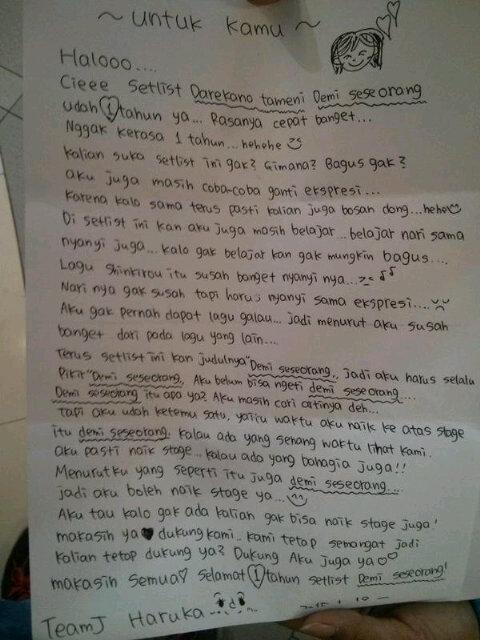 ~ untuk kamu ~
Halooo....
Cieee Setlist Darekano tameni Demi seseorang
udah 1 tahun ya... Rasanya cepat banget...
Nggak kerasa 1 tahun... hehehe
kalian suka setlist ini gak? Gimana? Bagus gak?
aku juga masih coba-coba ganti ekspresi...
Karena kalo sama terus pasti kalian juga bosan dong... hehe
Di setlist ini kan aku juga masih belajar... belajar nari sama
nyanyi juga... kalo gak belajar kan gak mungkin bagus....
Lagu Shinkirou itu susah banget nyanyi nya... >_<
Nari nya gak susah tapi harus nyanyi sama ekspresi....
Aku gak pernah dapat lagu galau... jadi menurut aku susah
banget dari pada lagu yang lain....
Terus setlist ini kan judulnya "Demi seseorang", jadi aku harus selalu
Pikir "Demi seseorang. Aku belum bisa ngeti demi seseorang....
Demi seseorang itu apa ya? Aku masih cari artinya deh...
tapi aku udah ketemu satu, yaitu waktu aku naik ke atas stage
itu demi seseorang. kalau ada yang senang waktu lihat kami.
aku pasti naik stage... kalau ada yang bahagia juga!!
Menurutku yang seperti itu juga demi seseorang....
jadi aku boleh naik stage ya...
Aku tau kalo gak ada kalian gak bisa naik stage juga'
makasih ya ♥ dukung kami.. kami tetap semangat jadi
kalian tetap dukung ya? Dukung Aku juga ya ♡♡
makasih semua♡ selamat 1 tahun setlist Demi seseorang!
TeamJ Haruka